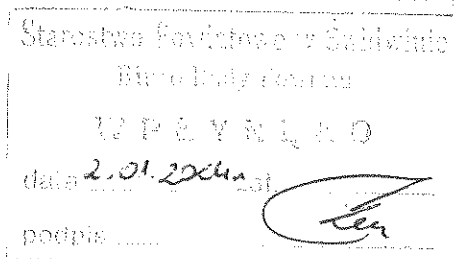 Starostwo Powiatowe w Świdwinie
Biuro Rady Powiatu
WPŁYNĘŁO
data 2.01.
podpis